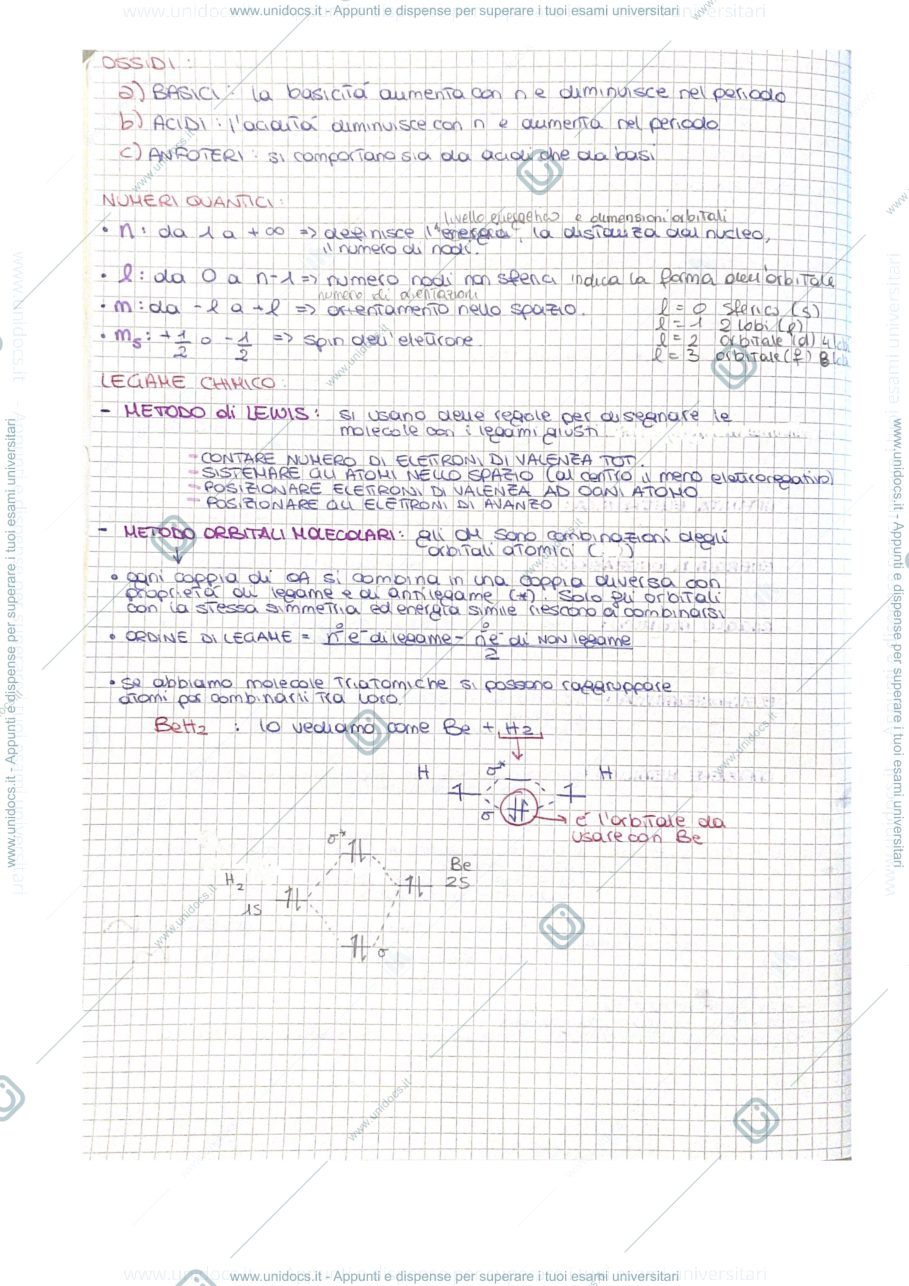 www.unidocs.it - Appunti e dispense per superare i tuoi esami universitari
OSSIDI :
a) BASICI : la basicità aumenta con n e diminuisce nel periodo
b) ACIDI : l'acidità diminuisce con n e aumenta nel periodo.
c) ANFOTERI : si comportano sia da acidi che da basi
NUMERI QUANTICI :
livello energetico e dimensioni orbitali
• n : da 1 a +∞ => definisce l'energia, la distanza dal nucleo,
il numero di nodi.
• l : da 0 a n-1 => numero nodi non sferici indica la forma dell'orbitale
numero di orientazioni
• m : da -l a +l => orientamento nello spazio.
l = 0 sferico (s)
l = 1 2 lobi (p)
• ms : +1/2 o -1/2 => spin dell'elettrone.
l = 2 orbitale (d) 4 lobi
l = 3 orbitale (f) 8 lobi
LEGAME CHIMICO :
- METODO di LEWIS : si usano delle regole per disegnare le
molecole con i legami giusti
- CONTARE NUMERO DI ELETTRONI DI VALENZA TOT.
- SISTEMARE GLI ATOMI NELLO SPAZIO (al centro il meno elettronegativo)
- POSIZIONARE ELETTRONI DI VALENZA AD OGNI ATOMO
- POSIZIONARE GLI ELETTRONI DI AVANZO
- METODO ORBITALI MOLECOLARI : gli OM sono combinazioni degli
orbitali atomici (...)
• ogni coppia di OA si combina in una coppia diversa con
proprietà di legame e di antilegame (*). Solo gli orbitali
con la stessa simmetria ed energia simile riescono a combinarsi
• ORDINE DI LEGAME = n° e⁻ di legame - n° e⁻ di NON legame
2
• se abbiamo molecole triatomiche si possono raggruppare
atomi per combinarli tra loro.
BeH2 : lo vediamo come Be + H2
H σ* H
σ
è l'orbitale da
usare con Be
σ*
H2 Be
1s 2s
σ
www.unidocs.it - Appunti e dispense per superare i tuoi esami universitari